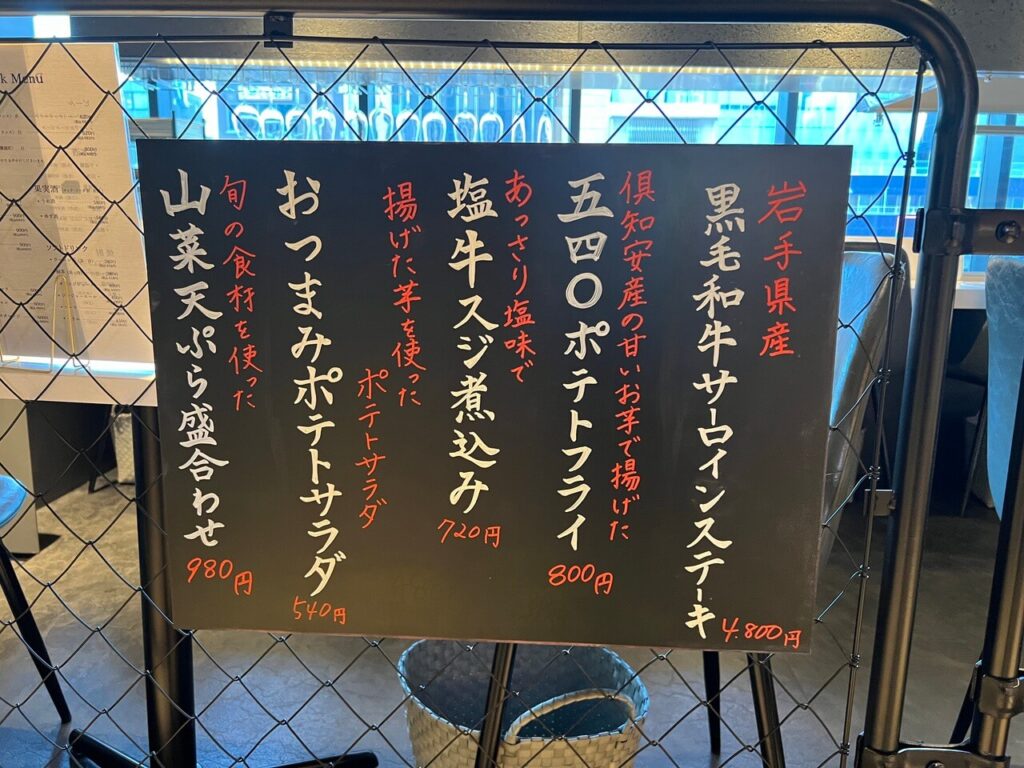 岩手県産
黒毛和牛サーロインステーキ
4.800円
倶知安産の甘いお芋で揚げた
五四〇ポテトフライ
800円
あっさり塩味で
塩牛スジ煮込み
720円
揚げた芋を使った
ポテトサラダ
おつまみポテトサラダ
540円
旬の食材を使った
山菜天ぷら盛合わせ
980円
k Menu
果実酒
ソフトドリンク